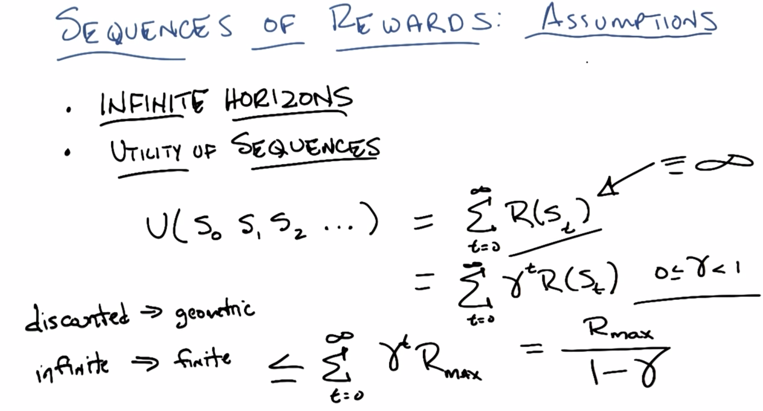 SEQUENCES OF REWARDS: ASSUMPTIONS
• INFINITE HORIZONS
• UTILITY OF SEQUENCES
U(S₀ S₁ S₂ ...) = ∑_{t=0}^{∞} R(S_t) ≡ ∞
= ∑_{t=0}^{∞} γ^t R(S_t) 0≤γ<1
discounted ⇒ geometric
infinite ⇒ finite ≤ ∑_{t=0}^{∞} γ^t R_max = R_max / 1-γ